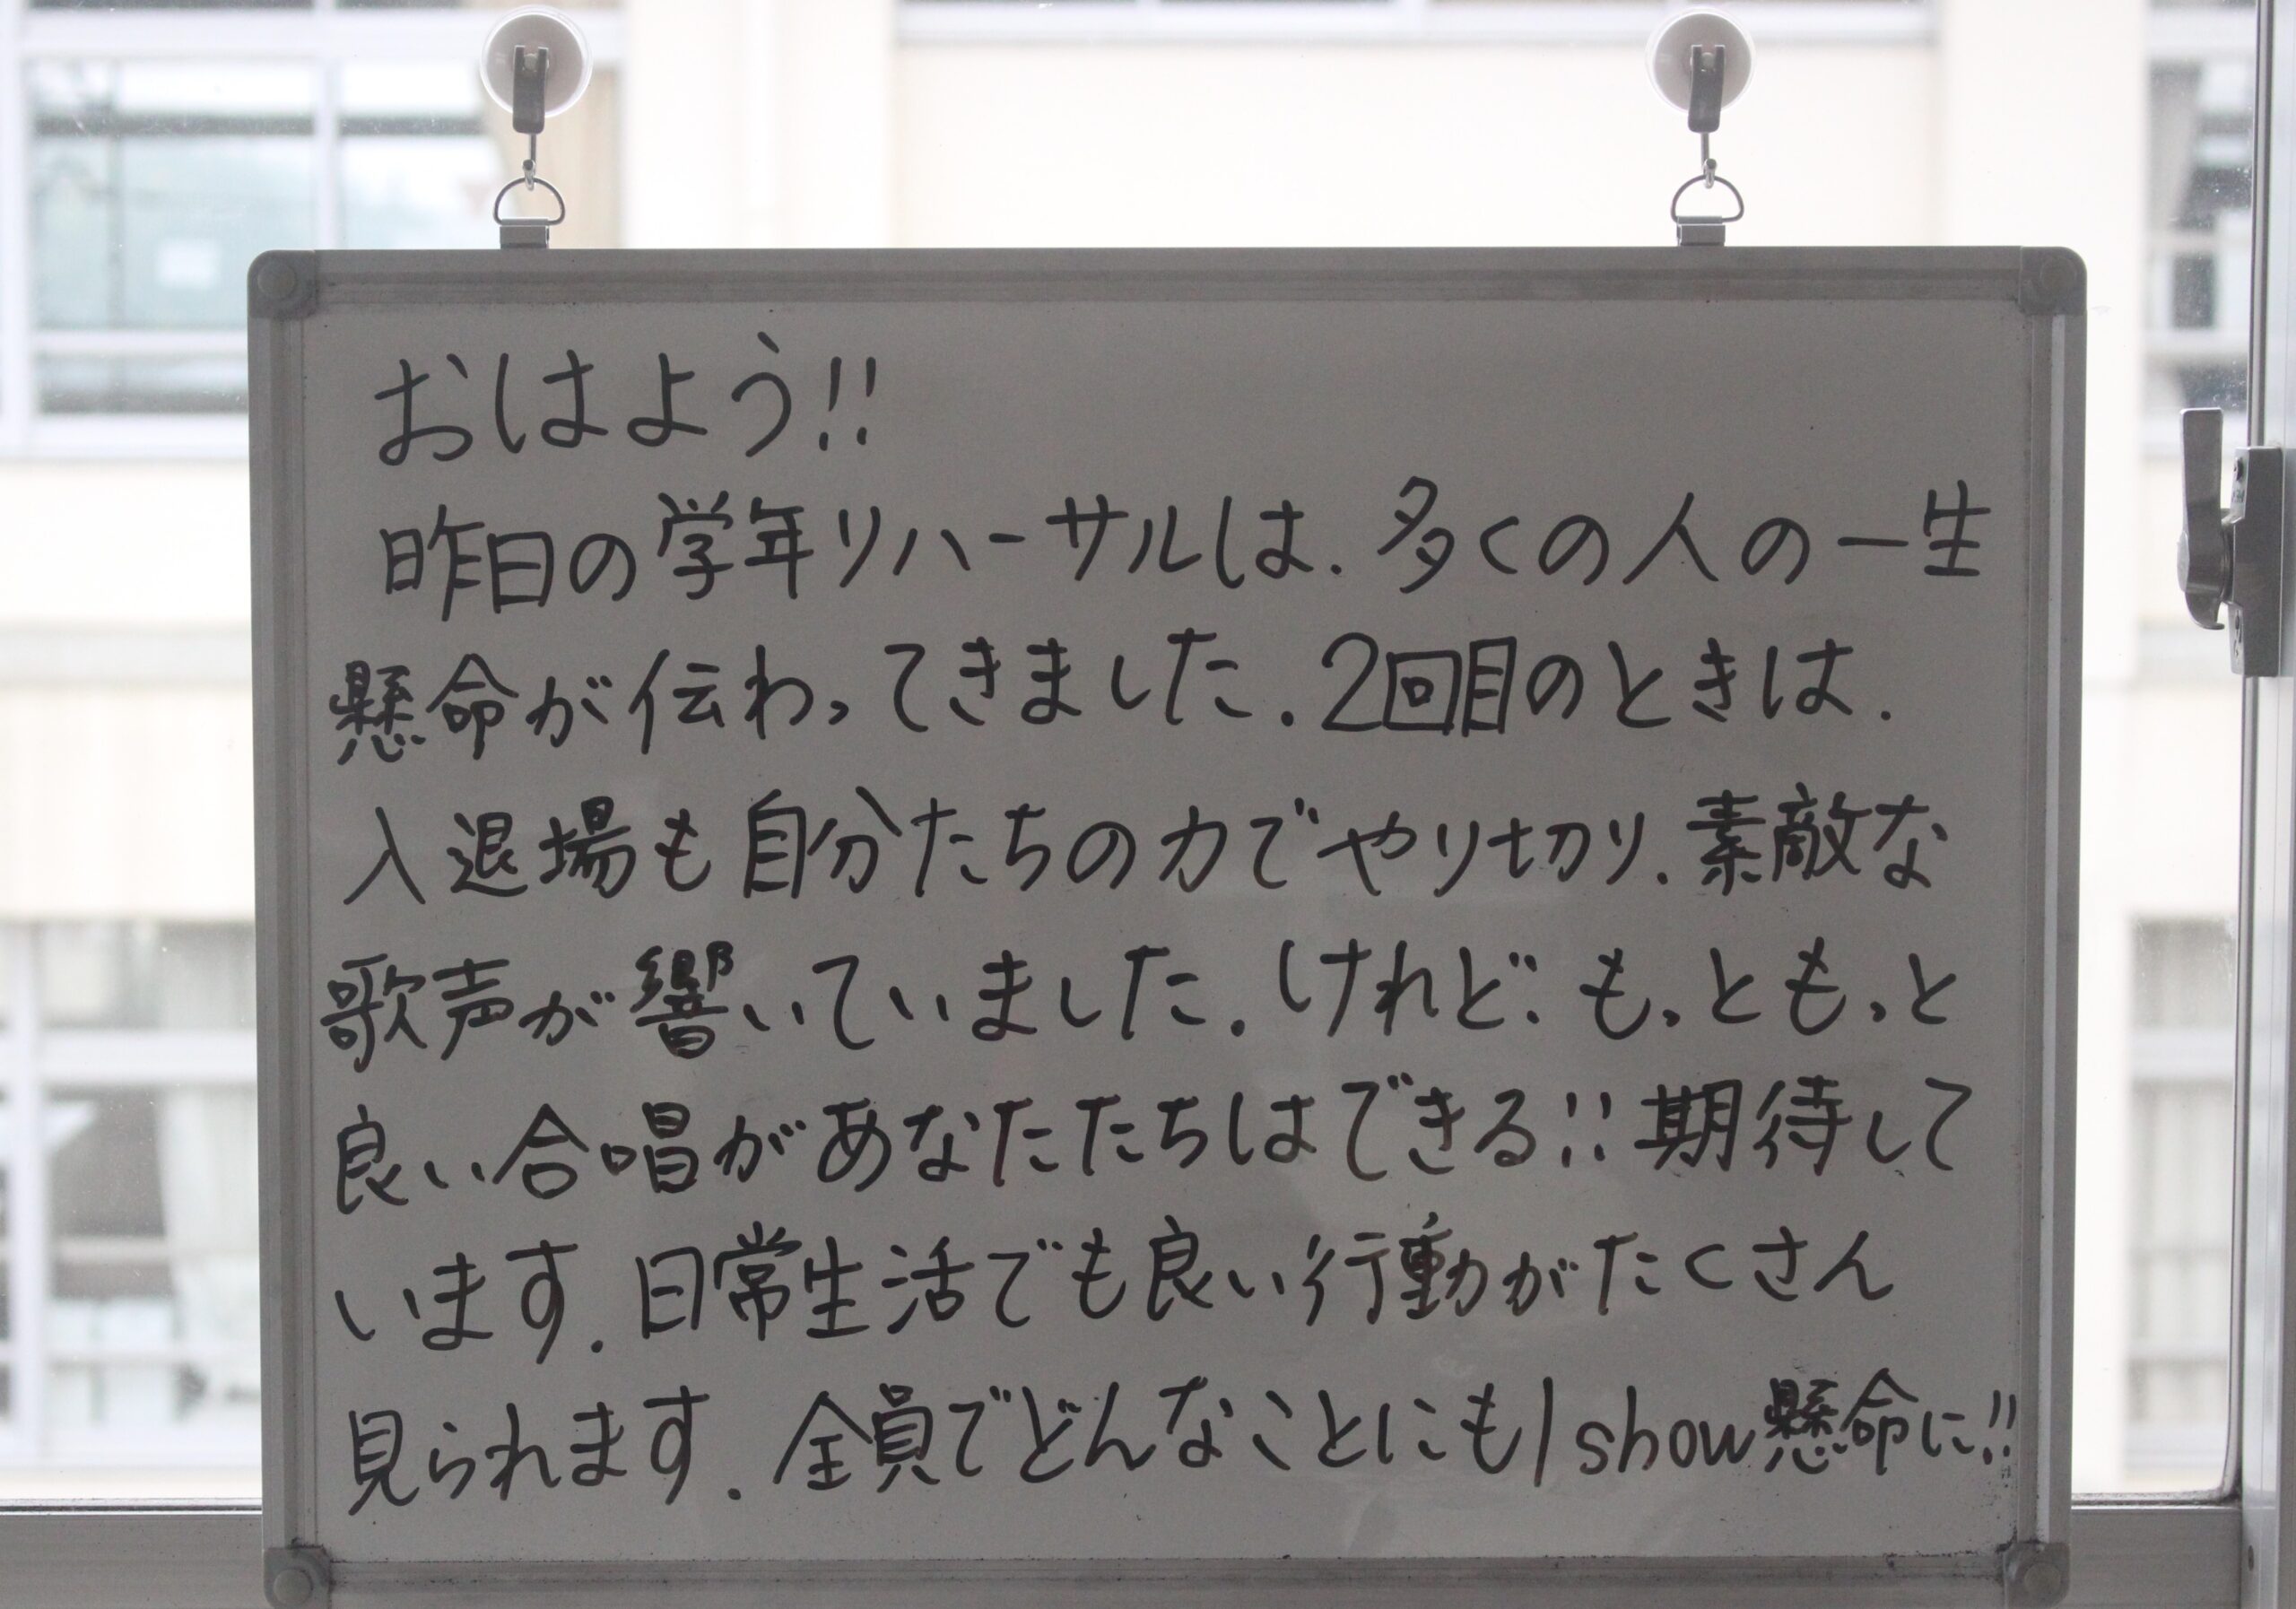 おはよう!!
昨日の学年リハーサルは.多くの人の一生
懸命が伝わってきました.2回目のときは.
入退場も自分たちの力でやり切り.素敵な
歌声が響いていました.けれど.もっともっと
良い合唱があなたたちはできる!!期待して
います.日常生活でも良い行動がたくさん
見られます.全員でどんなことにも1show懸命に!!